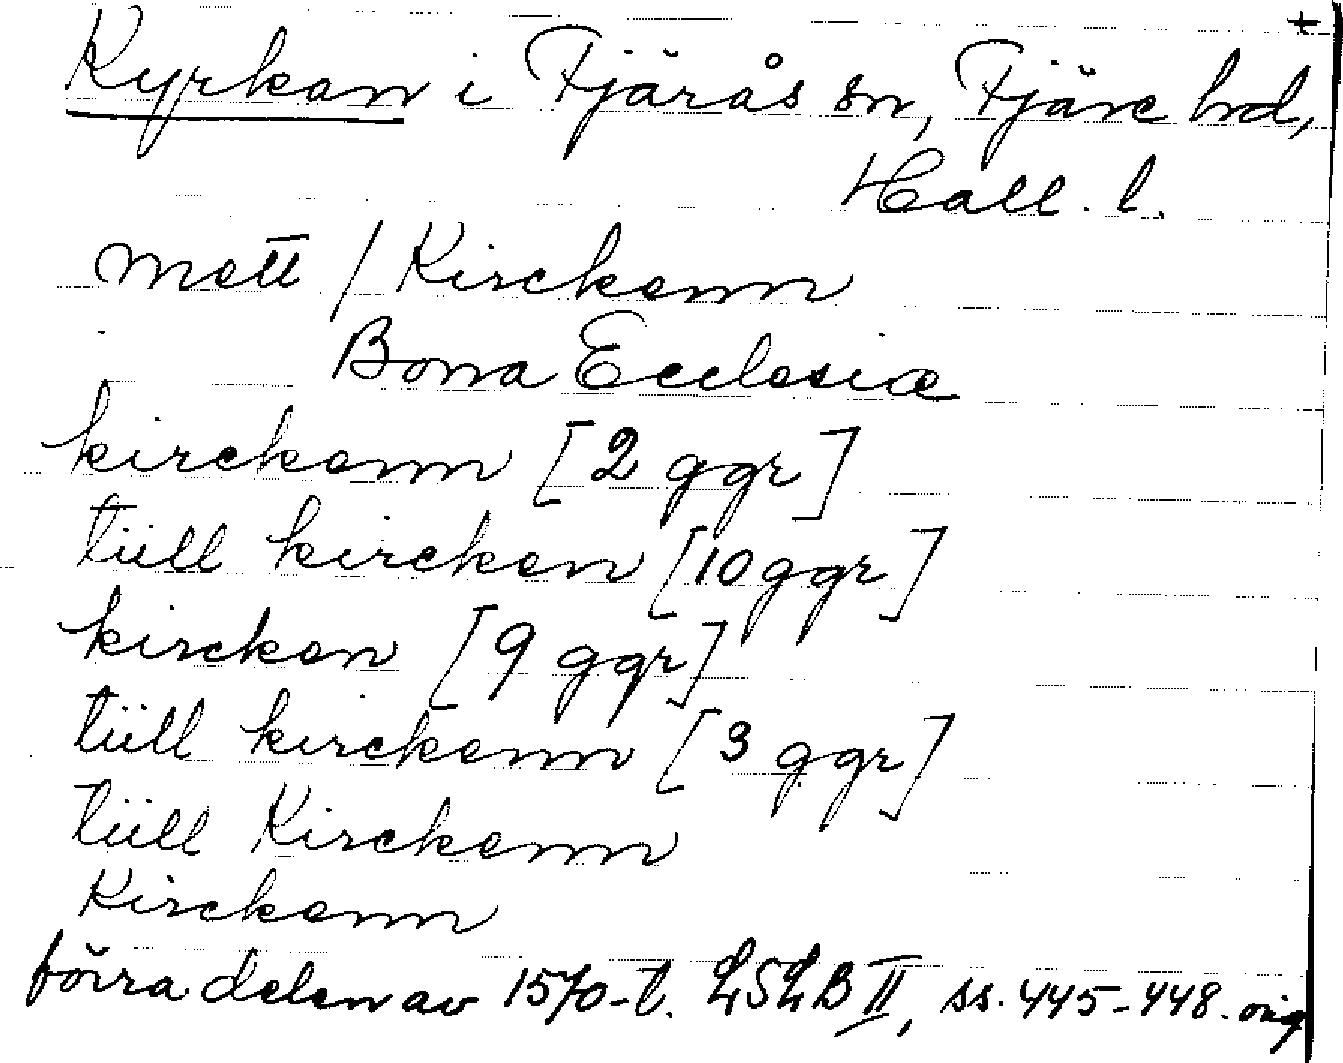 +
Kyrkan i Fjärås sn, Fjäre hd,
Hall. l.
mett / Kirckenn
Bona Ecclesiæ
kirckenn [2 ggr]
tiill kircken [10 ggr]
kircken [9 ggr]
tiill kirckenn [3 ggr]
tiill Kirckenn
Kirckenn
förra delen av 1570-t. LSLB II, ss. 445-448. orig